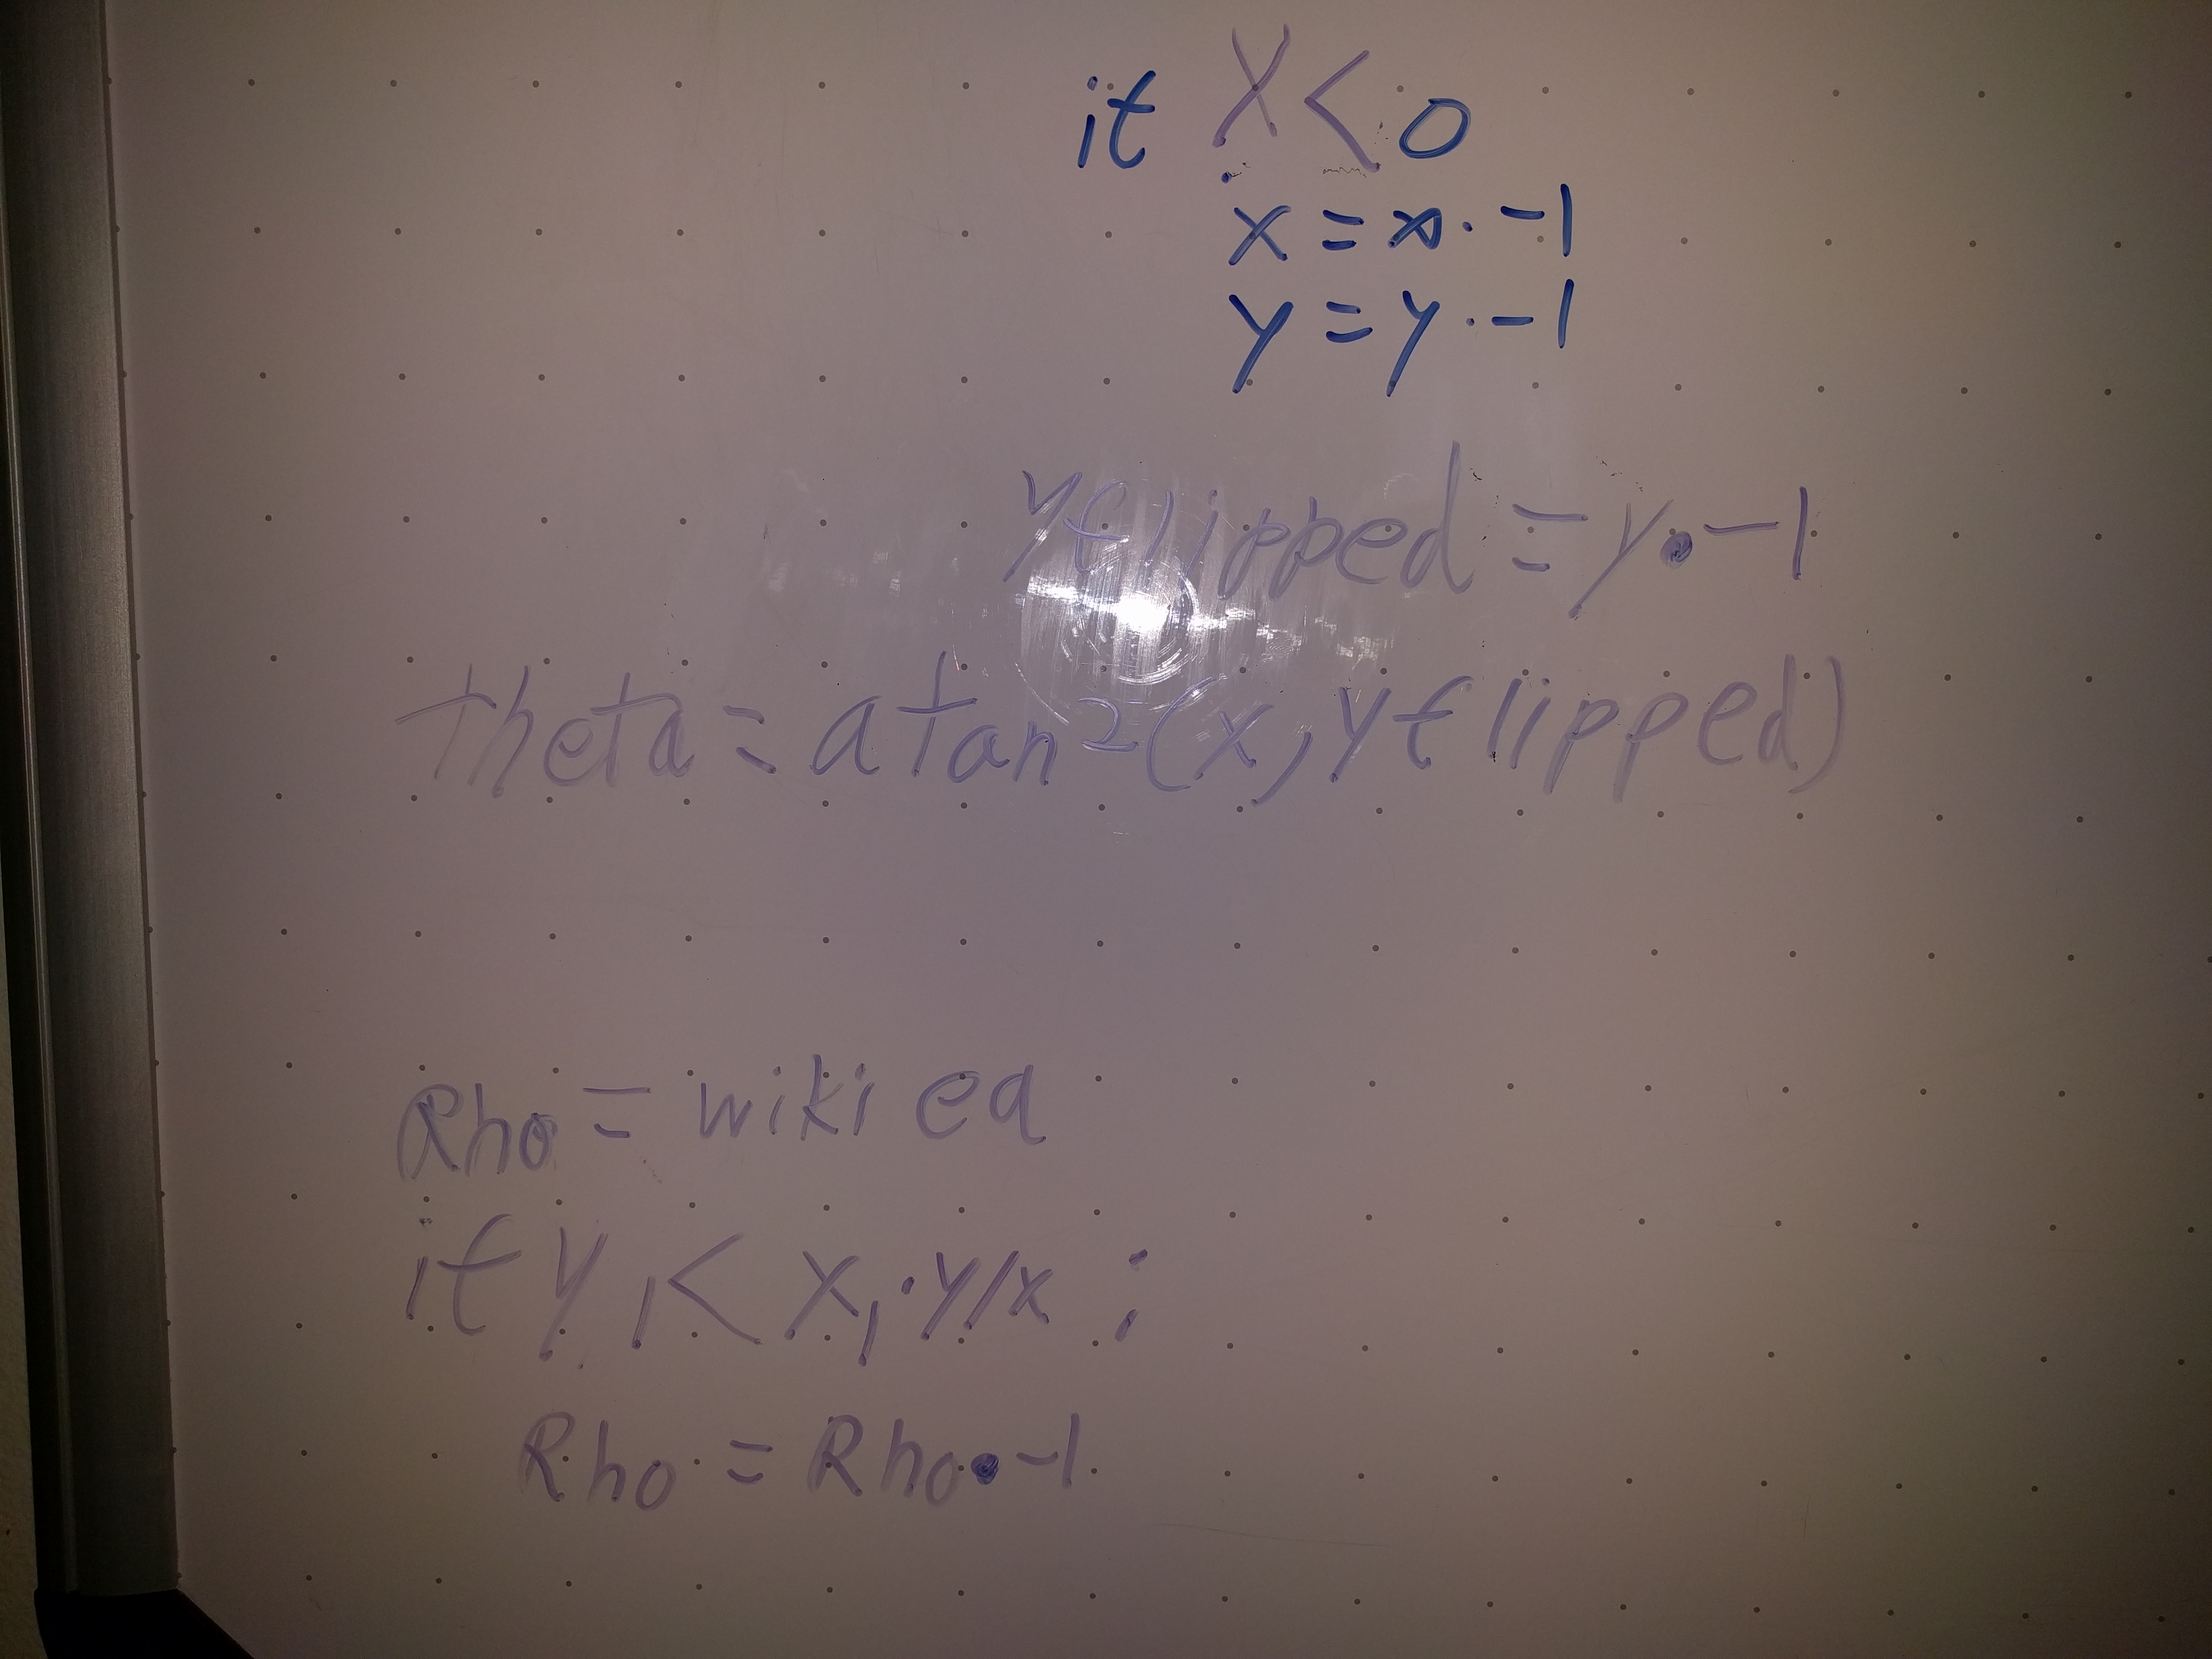 if X < 0
x = x · -1
y = y · -1
yflipped = y • -1
theta = atan2(x, yflipped)
Rho = wiki eq
if y₁ < x₁ · y/x :
Rho = Rho • -1